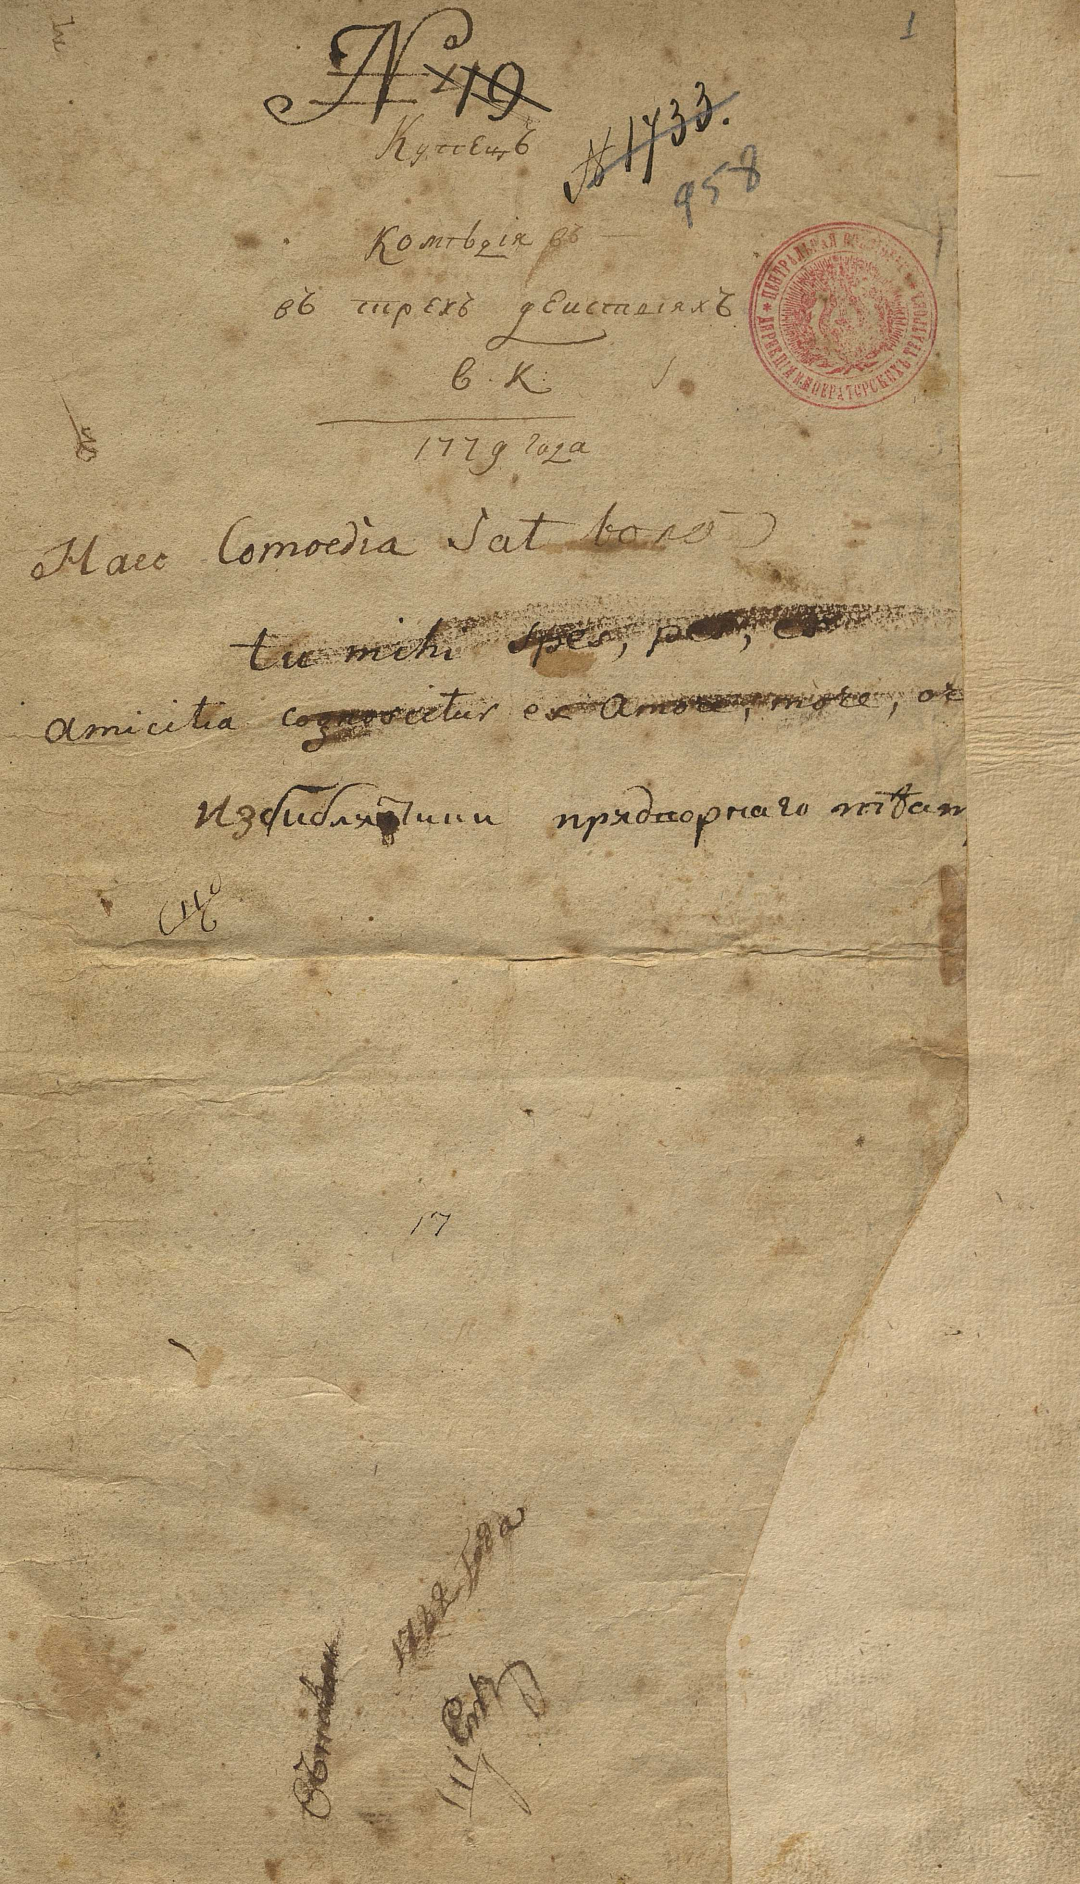 1
№ 19
Купецъ
№ 1733.
958
Комѣдія въ
въ трехъ деиствіяхъ
в. к.
1779 года
ЦЕНТРАЛЬНАЯ ДИРЕКЦІИ ИМПЕРАТОРСКИХЪ ТЕАТРОВЪ
Haec Comoedia Sat bona
tu mihi spes, pes, es
amicitia cognoscitur ex amore, more, or
Из библиотики придворнаго тѣат
17
1788 Года